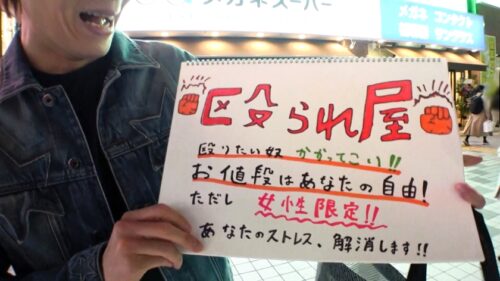 メガネスーパー
メガネ コンタクト
サングラス
殴られ屋
殴りたい奴 かかってこい!!
お値段はあなたの自由!
ただし 女性限定!!
あなたのストレス、解消します!!